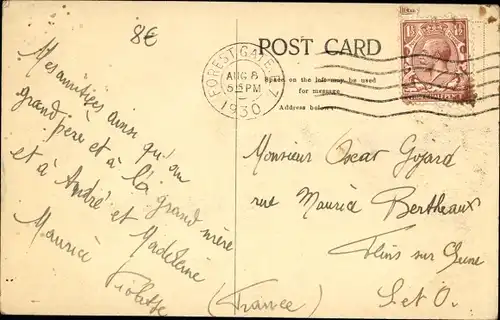 8€
POST CARD
Space on the left may be used
for message
Address below
FOREST GATE E.7
AUG 8
5.15 PM
1930
Mes amitiés ainsi qu'au
grand père et à la grand mère
et à André et Madeleine
Maurice
Violette
Monsieur Oscar Gojard
rue Maurice Berteaux
Flins sur Seine
S. et O.
(France)